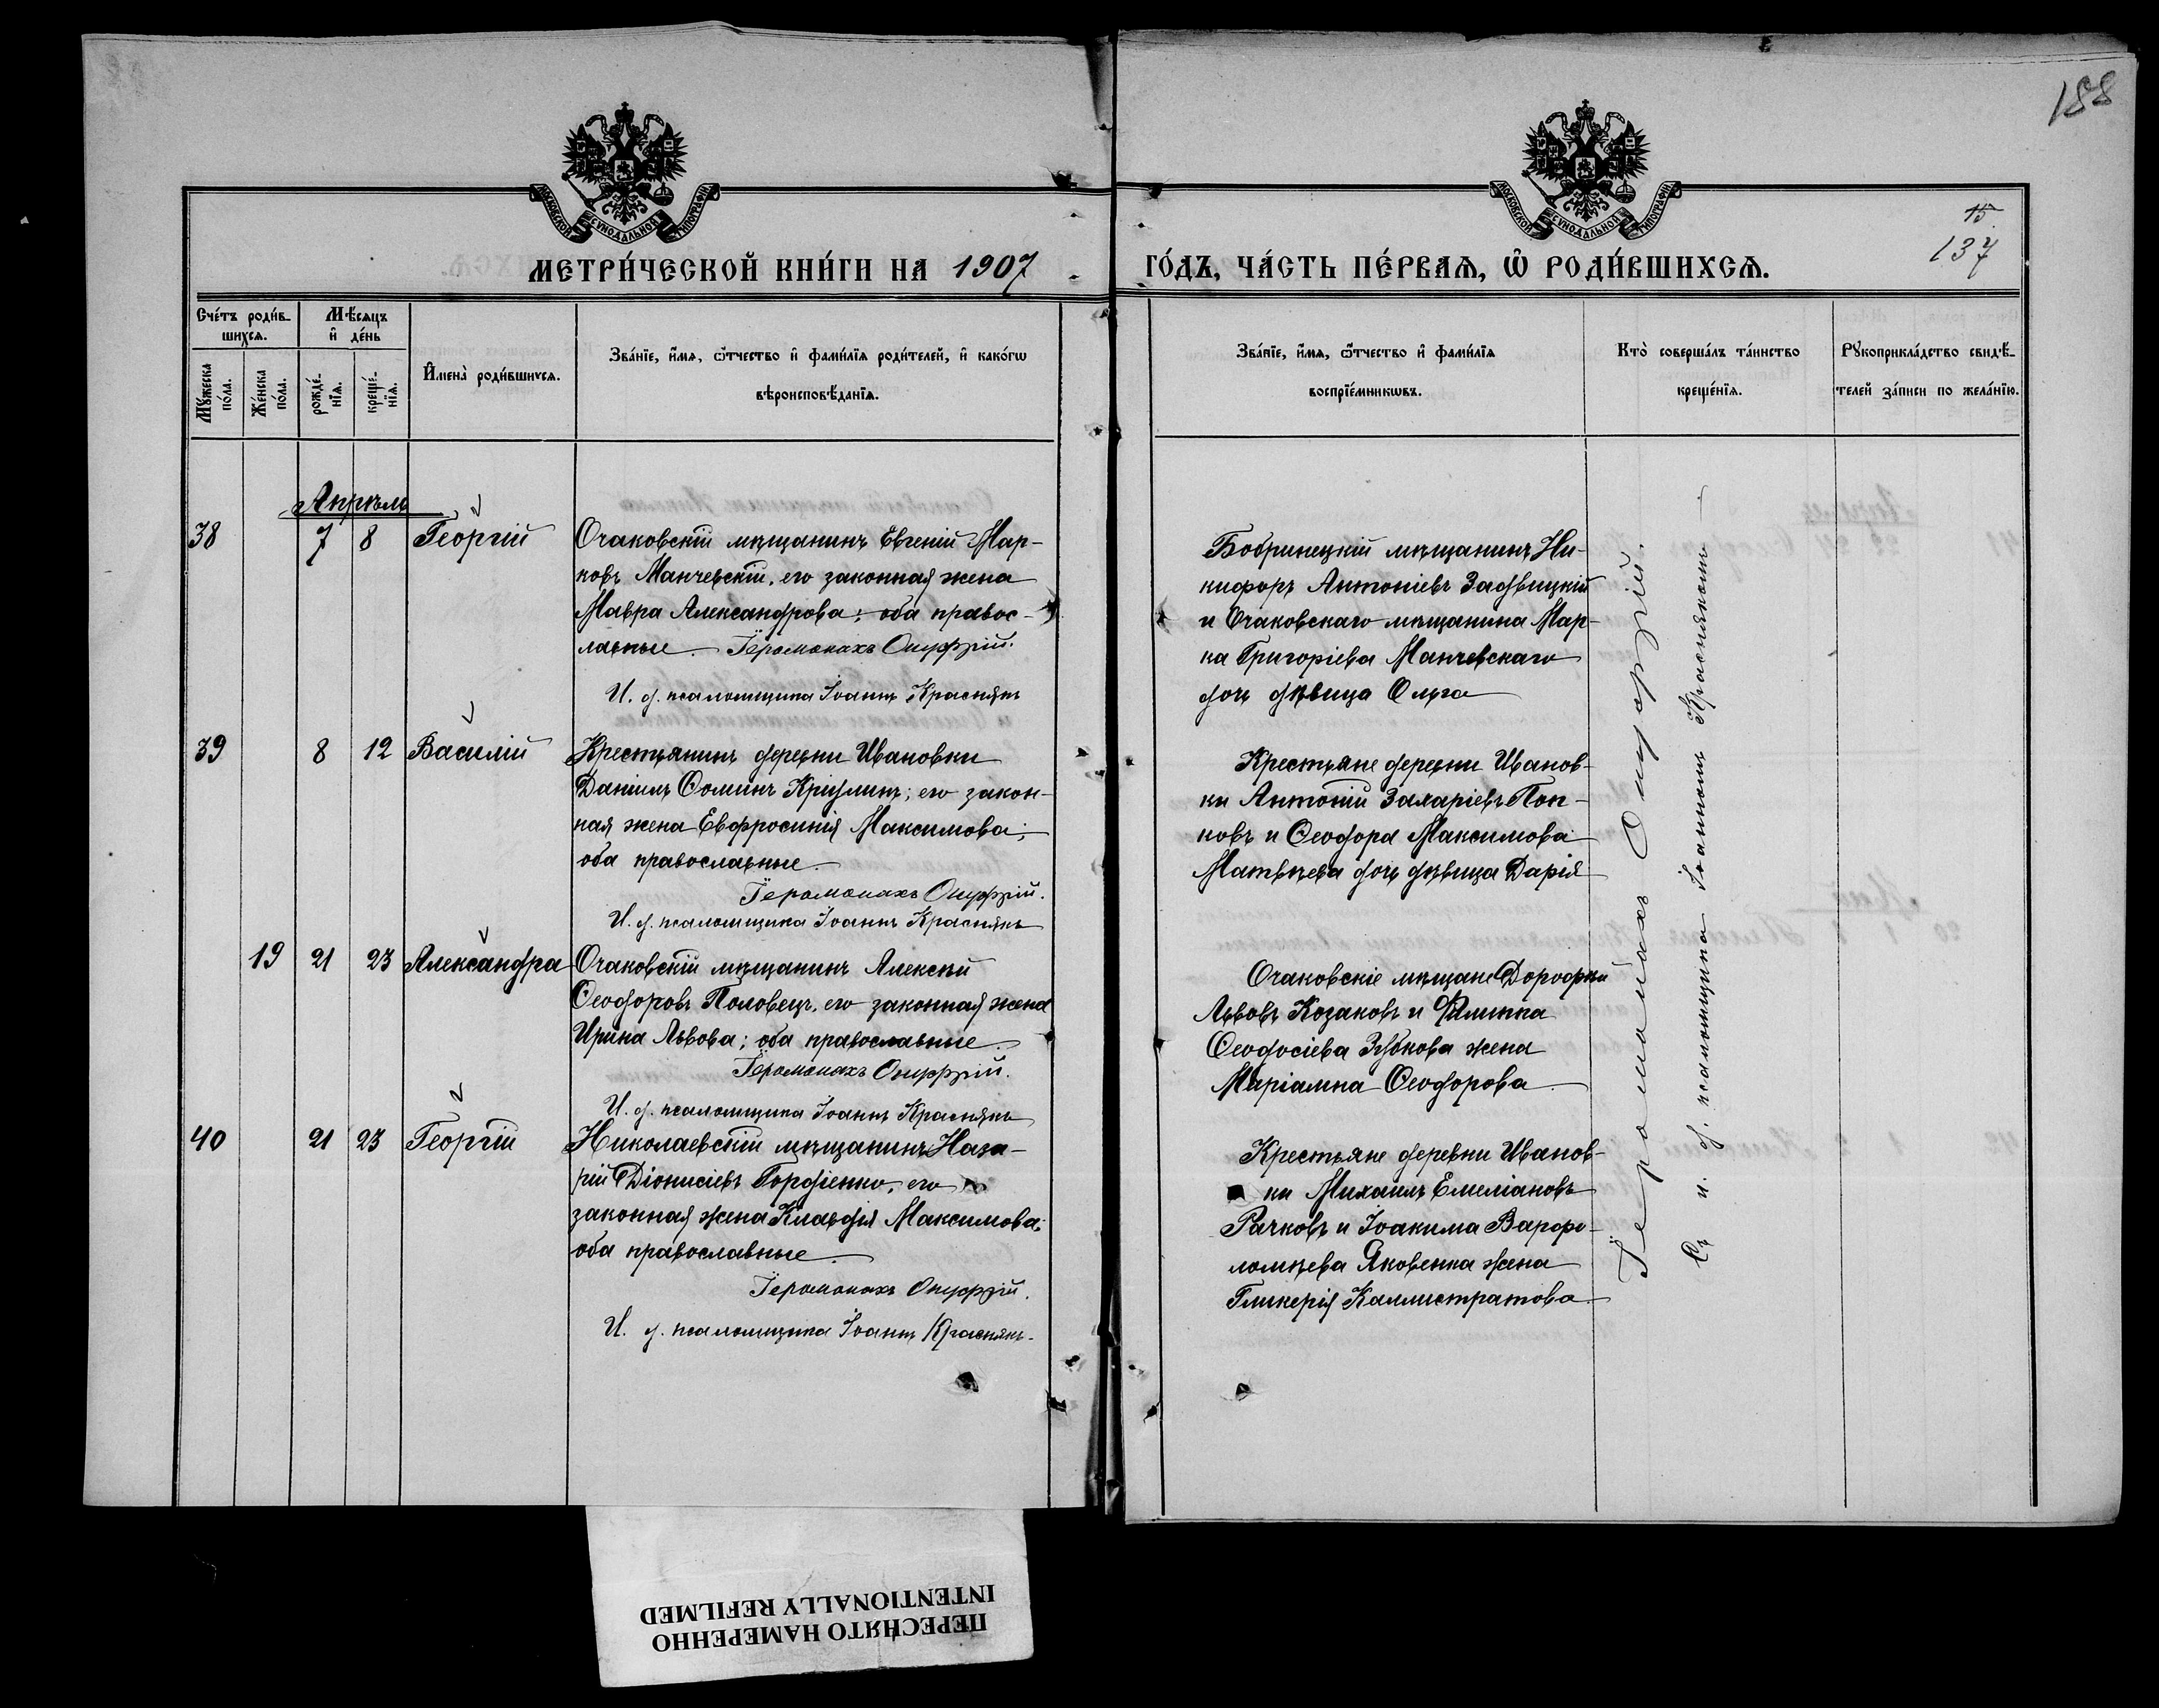 188
15
137
МОСКОВСКОЙ СУНОДАЛЬНОЙ ТИПОГРАФІИ
МОСКОВСКОЙ СУНОДАЛЬНОЙ ТИПОГРАФІИ
МЕТРИ́ЧЕСКОЙ КНИ́ГИ НА 1907
ГО́ДЪ, ЧА́СТЬ ПЕ́РВАѦ, Ѡ҆ РОДИ́ВШИХСѦ.
Сче́тъ роди́в-
шихсѧ.
Мѣ́сѧцъ
и҆ де́нь
Мꙋ́жеска
по́ла.
Же́нска
по́ла.
рожде́-
нїѧ.
креще́-
нїѧ.
И҆мена̀ роди́вшихсѧ.
Зва́нїе, и҆́мѧ, ѻ҆́тчество и҆ фами́лїѧ роди́телей, и҆ како́гѡ
вѣроисповѣ́данїѧ.
Зва́нїе, и҆́мѧ, ѻ҆́тчество и҆ фами́лїѧ
воспрїе́мникѡвъ.
Кто̀ соверша́лъ та́инство
креще́нїѧ.
Рꙋкоприкла́дство свидѣ́-
телей за́писи по жела́нїю.
Апрѣль
38 7 8 Георгій
Очаковскій мѣщанинъ Евгеній Мар-
ковъ Манчевскій, его законная жена
Мавра Александрова; оба правос-
лавные. Іеромонахъ Онуфрій.
И. д. псаломщика Іоаннъ Краснякъ
Бобринецкій мѣщанинъ Ни-
кифоръ Антоніевъ
и Очаковскаго мѣщанина Мар-
ка Григоріева Манчевскаго
дочь дѣвица Ольга
39 8 12 Василій
Крестьянинъ деревни Ивановки
Даніилъ Ѳоминъ его закон-
ная жена Евфросинія Максимова;
оба православные.
Іеромонахъ Онуфрій.
И. д. псаломщика Іоаннъ Краснякъ
Крестьяне деревни Иванов-
ки Антоній Захаріевъ Поп-
ковъ и Ѳеодора Максимова
Матвѣева дочь дѣвица Дарія
19 21 23 Александра
Очаковскій мѣщанинъ Алексѣй
Ѳеодоровъ Половецъ, его законная жена
Ирина Львова; оба православные.
Іеромонахъ Онуфрій.
И. д. псаломщика Іоаннъ Краснякъ
Очаковскіе мѣщане Дороѳей
Львовъ Козаковъ и Филиппа
Ѳеодосіева Зубкова жена
Маріамна Ѳеодорова
40 21 23 Георгій
Николаевскій мѣщанинъ Наза-
рій Діонисіевъ Гордіенко, его
законная жена Клавдія Максимова;
оба православные.
Іеромонахъ Онуфрій.
И. д. псаломщика Іоаннъ Краснякъ.
Крестьяне деревни Иванов-
ки Михаилъ Емеліановъ
Рачковъ и Іоакима Варфо-
ломѣева Яковенка жена
Гликерія Каллистратова
Іеромонахъ Онуфрій.
Съ и. д. псаломщика Іоанномъ Краснякомъ
ПЕРЕСНЯТО НАМЕРЕННО
INTENTIONALLY REFILMED